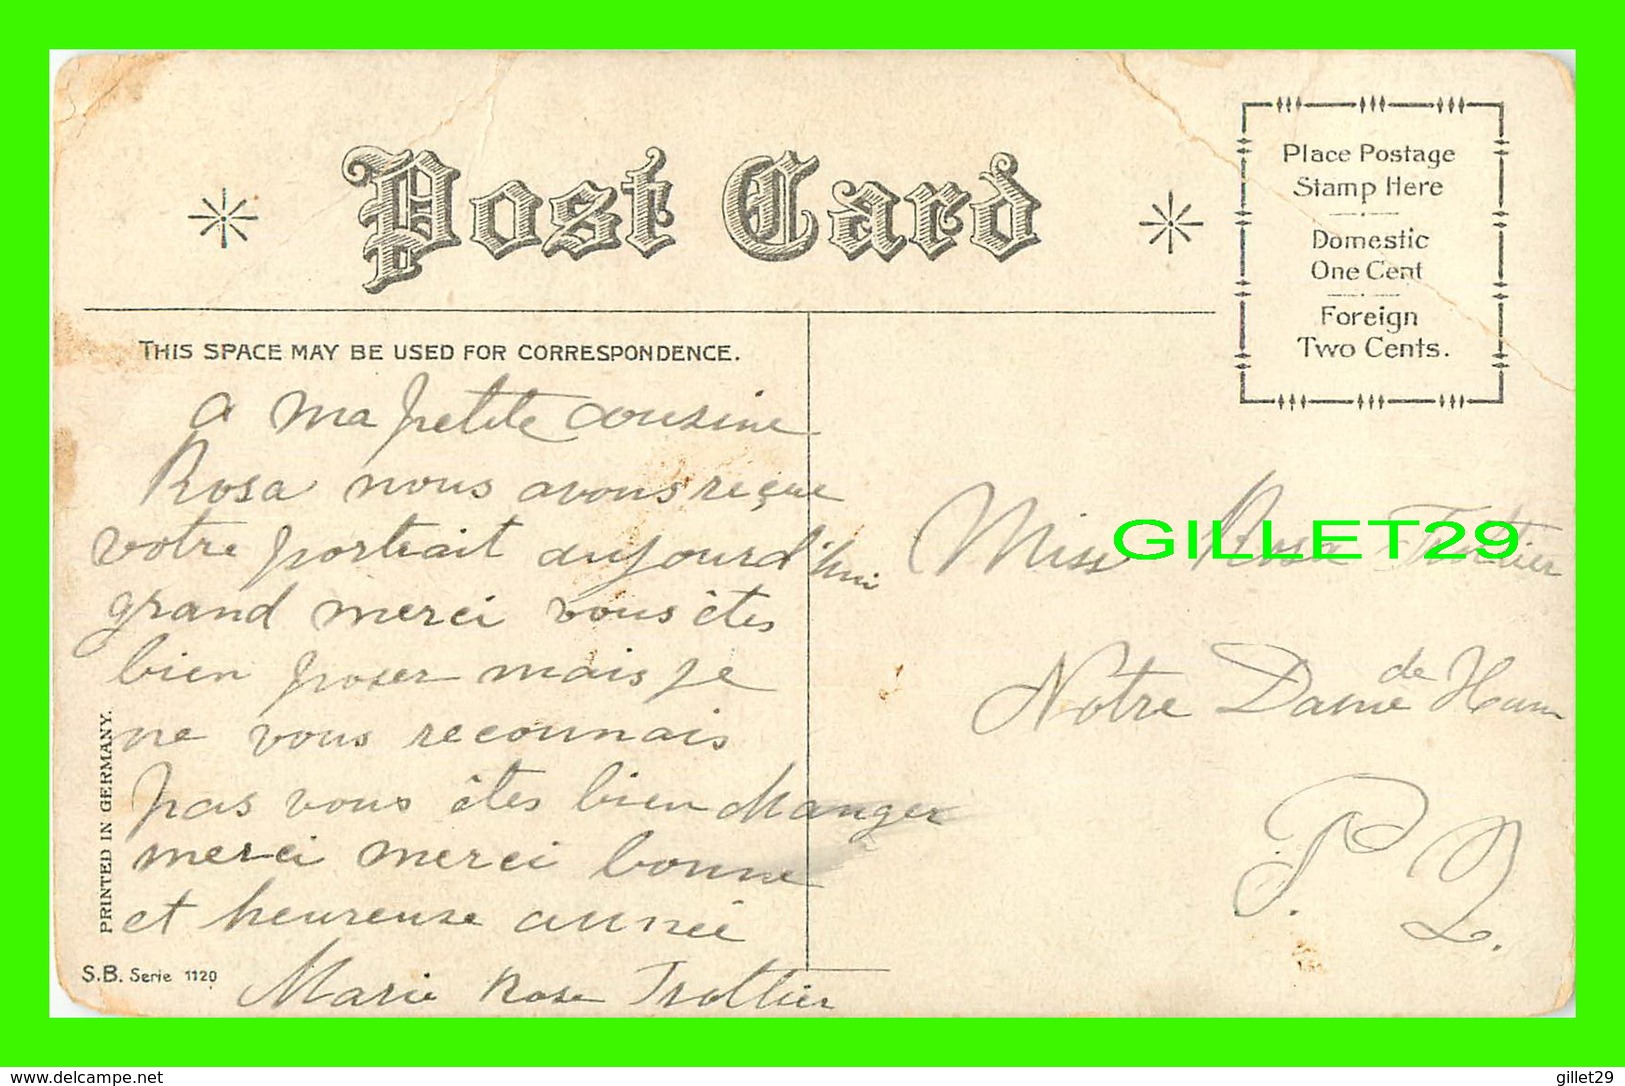 Post Card
Place Postage
Stamp Here
Domestic
One Cent
Foreign
Two Cents.
THIS SPACE MAY BE USED FOR CORRESPONDENCE.
a ma petite cousine
Rosa nous avons reçue
votre portrait aujourd'hui
grand merci vous êtes
bien poser mais je
ne vous reconnais
pas vous êtes bien changer
merci merci bonne
et heureuse année
Marie Rose Trottier
Miss Rosa
Notre Dame de Ham
P. Q.
GILLET29
PRINTED IN GERMANY.
S.B. Serie 1120
delcampe.net
gillet29